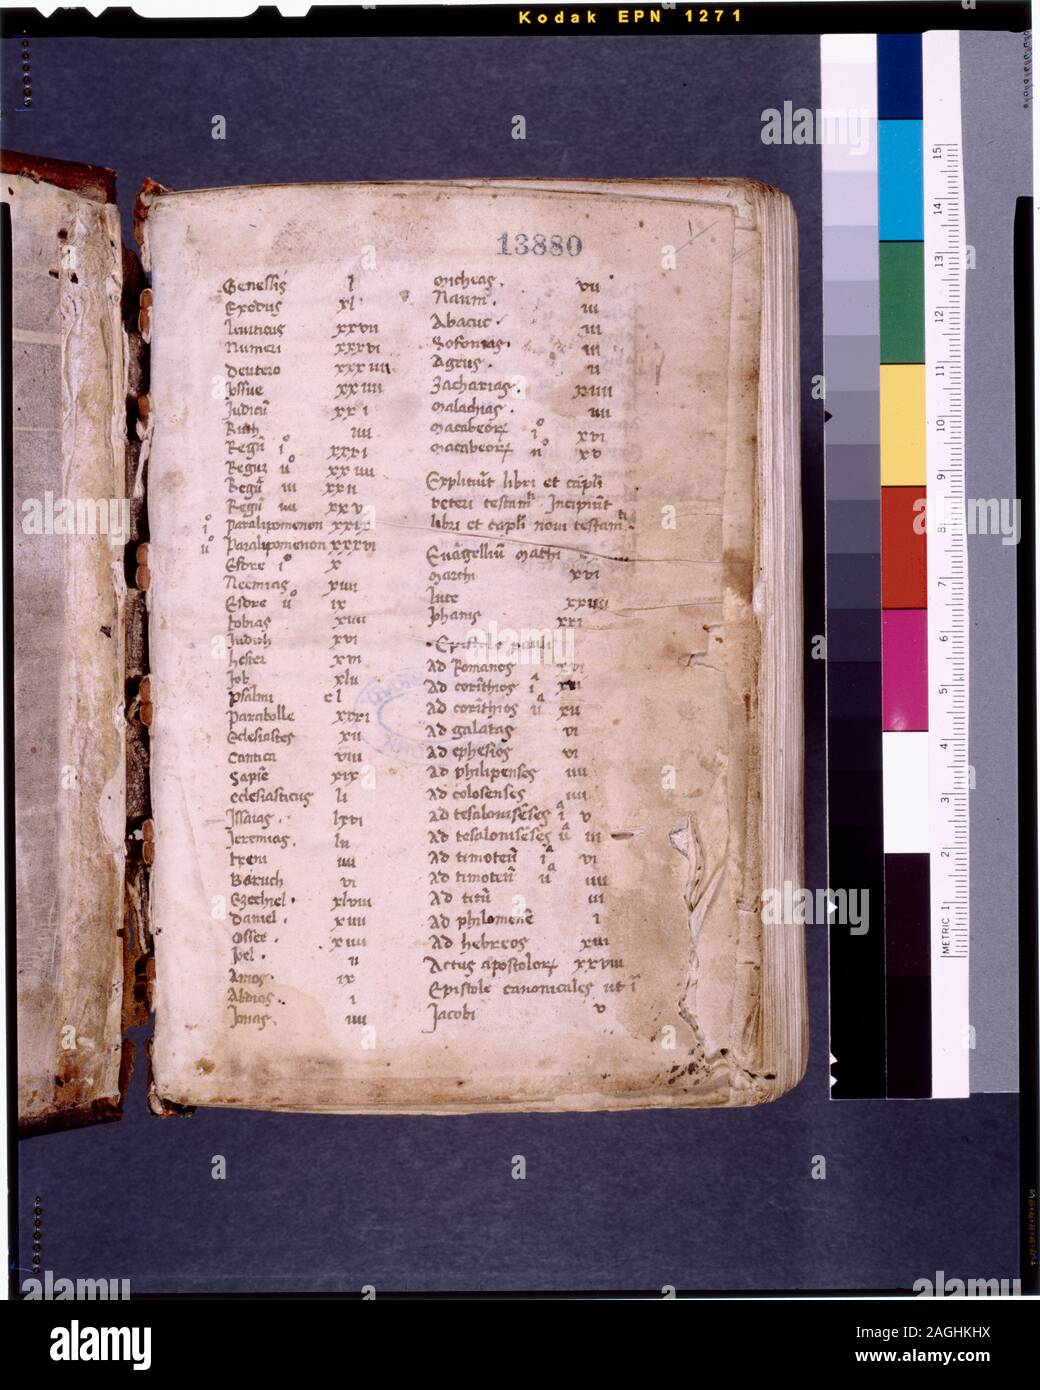 Kodak EPN 1271
13880
Genesis l
Exodus xl
leuiticus xxvii
Numeri xxxvi
Deutero xxxiiii
Josue xxiiii
Judicū xxi
Ruth iiii
Regū iº xxxi
Regū iiº xxiiii
Regū iii xxii
Regū iiii xxv
iº paralipomenon xxix
iiº paralipomenon xxxvi
Esdre iº x
Neemias xiiii
Esdre iiº ix
tobias xiiii
Judith xvi
hester xvi
Job xlii
psalmi cl
parabolle xxxi
Eclesiastes xii
Cantica viii
Sapiē xix
eclesiasticus li
Jssaias. lxvi
Jeremias. lii
treni iiii
Baruch vi
Ezechiel. xlviii
Daniel. xiiii
Ossee. xiiii
Joel. ii
Amos. ix
Abdias. i
Jonas. iiii
Micheas. vii
Naum. iii
Abacuc. iii
Sofonias. iii
Ageus. ii
Zacharias. xiiii
Malachias. iiii
Macabeoꝝ iº xvi
Macabeoꝝ iiº xv
Expliciūt libri et capli
veteri testam̄ Incipiūt
libri et capli noui testam̄ti
Euāgelliū mathi
marchi xvi
luce xxiiii
Johanis xxi
Epistole pauli
Ad Romanos xvi
Ad corīthios iª xvi
Ad corīthios iiª xii
Ad galatas vi
Ad ephesios vi
Ad philipenses iiii
Ad colosenses iiii
Ad tesalonisēses iª v
Ad tesalonisēses iiª iii
Ad timoteū iª vi
Ad timoteū iiª iiii
Ad titū iii
Ad philomenē i
Ad hebreos xiii
Actus apostoloꝝ xxviii
Epistole canonicales ut ī
Jacobi v
METRIC 1 2 3 4 5 6 7 8 9 10 11 12 13 14 15
a alamy stock photo
alamy
Image ID: 2AGHKHX
www.alamy.com